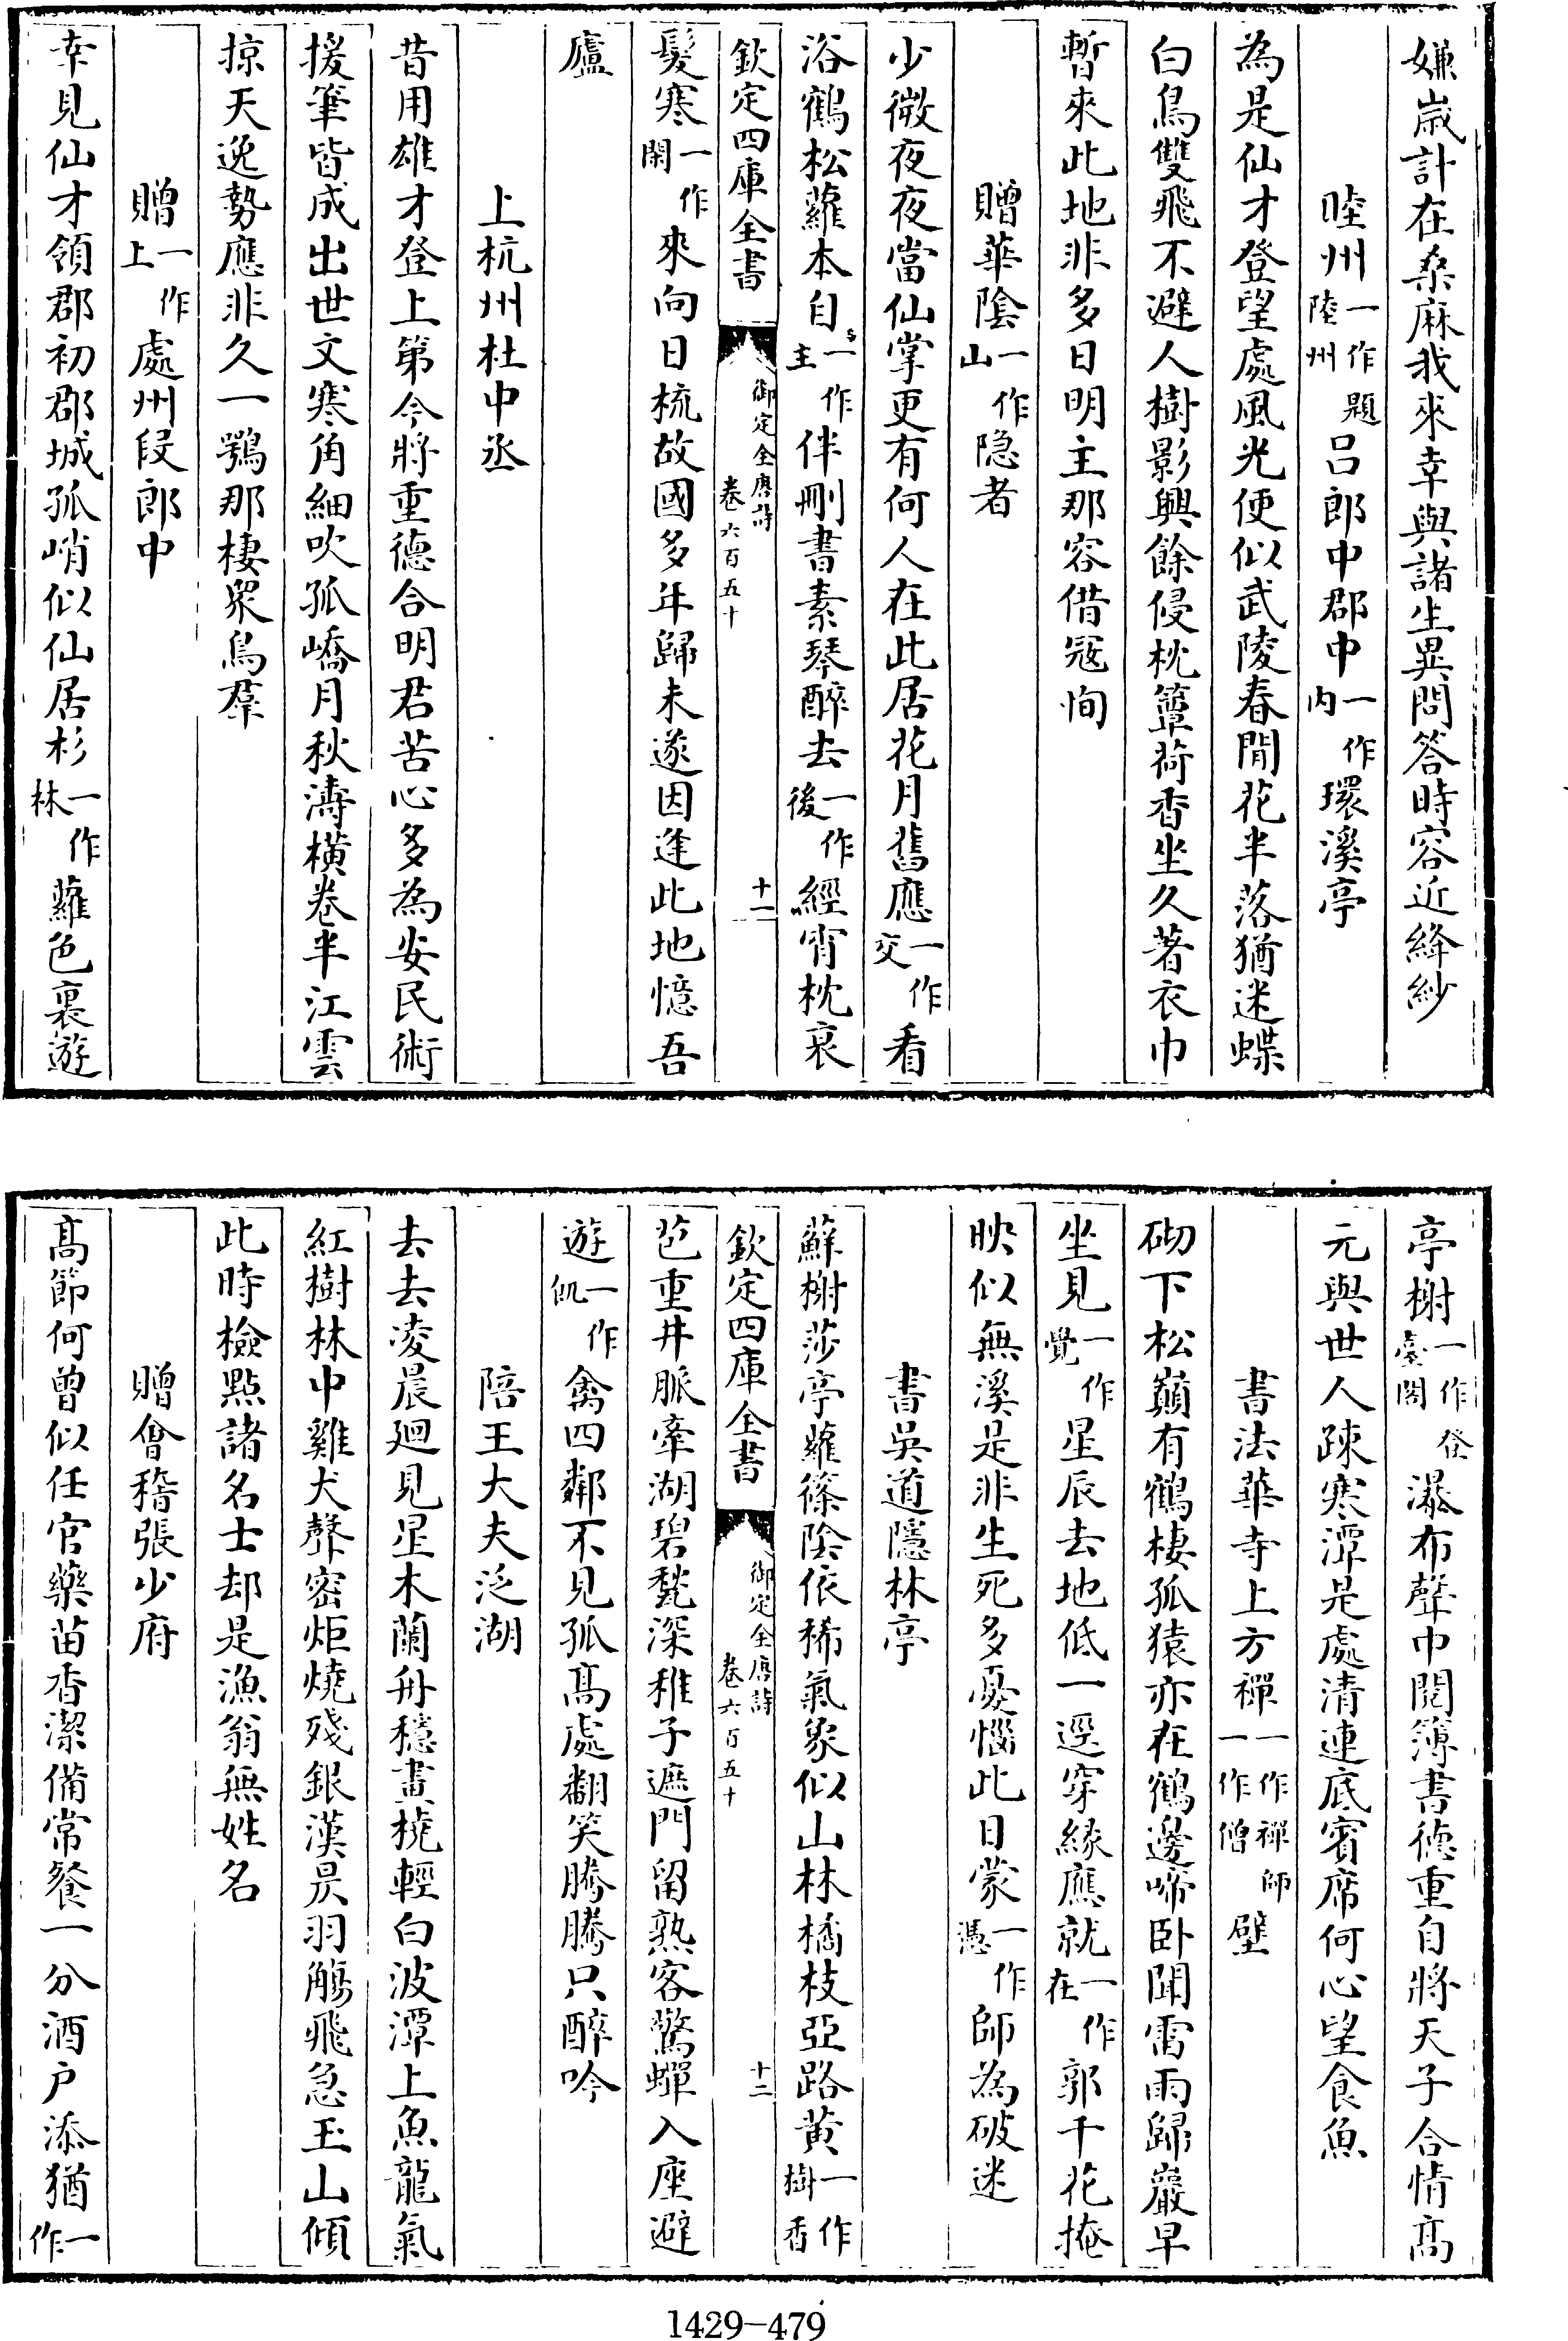 嫌歲計在桑麻我來幸與諸生異問答時容近絳紗
睦州一作題陸州吕郎中郡中一作内環溪亭
為是仙才登望處風光便似武陵春閒花半落猶迷蝶
白鳥雙飛不避人樹影興餘侵枕簟荷香坐久著衣巾
暫來此地非多日明主那容借寇恂
贈華陰一作山隐者
少微夜夜當仙掌更有何人在此居花月舊應一作交看
浴鶴松蘿本自一作主伴刪書素琴醉去一作後經宵枕衰
欽定四庫全書 御定全唐詩 卷六百五十 十一
髮寒一作閑來向日梳故國多年歸未遂因逢此地憶吾
廬
上杭州杜中丞
昔用雄才登上第今將重德合明君苦心多為安民術
援筆皆成出世文寒角細吹孤嶠月秋濤橫卷半江雲
掠天逸勢應非久一鶚那棲衆鳥羣
贈一作上處州段郎中
幸見仙才領郡初郡城孤峭似仙居杉一作林蘿色裏遊
亭榭一作登臺閣瀑布聲中閱簿書德重自將天子合情髙
元與世人疎寒潭是處清連底賓席何心望食魚
書法華寺上方禪一作禪師一作僧壁
砌下松巔有鶴棲孤猿亦在鶴邊啼卧聞雷雨歸巖早
坐見一作覺星辰去地低一逕穿緣應就一作在郭千花掩
映似無溪是非生死多憂惱此日蒙一作憑師為破迷
書吳道隱林亭
蘚榭莎亭蘿篠陰依稀氣象似山林橘枝亞路黄一作樹香
欽定四庫全書 御定全唐詩 卷六百五十 十二
苞重井脈牽湖碧甃深稚子遮門留熟客驚蟬入座避
遊一作飢禽四鄰不見孤髙處翻笑騰騰只醉吟
陪王大夫泛湖
去去凌晨廻見星木蘭舟穩畫橈輕白波潭上魚龍氣
紅樹林中雞犬聲密炬燒殘銀漢昃羽觴飛急玉山傾
此時檢點諸名士却是漁翁無姓名
贈會稽張少府
髙節何曾似任官藥苗香潔備常餐一分酒户添猶一作
1429-479